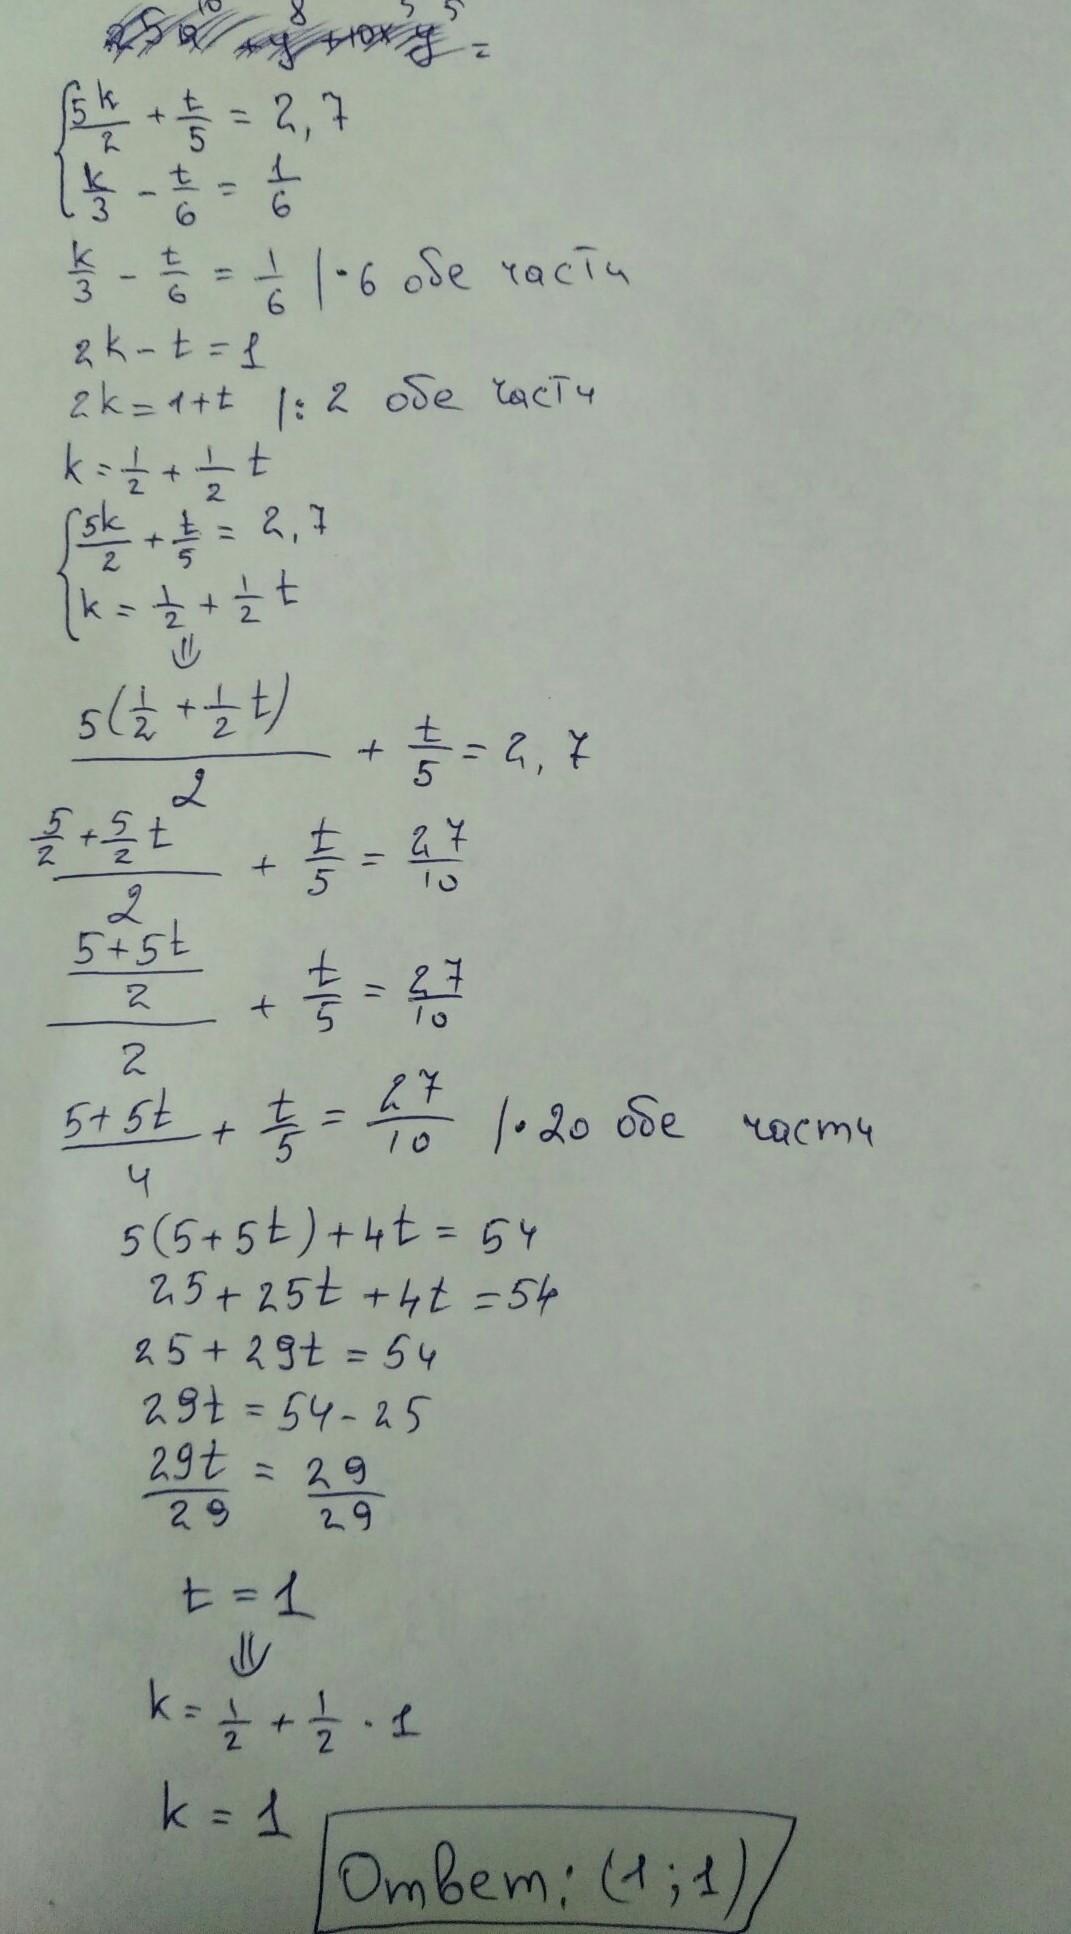 5k/2 + t/5 = 2,7
k/3 - t/6 = 1/6
k/3 - t/6 = 1/6 |·6 обе части
2k - t = 1
2k = 1 + t |: 2 обе части
k = 1/2 + 1/2 t
5k/2 + t/5 = 2,7
k = 1/2 + 1/2 t
⇓
5(1/2 + 1/2 t)/2 + t/5 = 2,7
(5/2 + 5/2 t)/2 + t/5 = 27/10
((5+5t)/2)/2 + t/5 = 27/10
(5+5t)/4 + t/5 = 27/10 |·20 обе части
5(5+5t)+4t = 54
25 + 25t + 4t = 54
25 + 29t = 54
29t = 54 - 25
29t/29 = 29/29
t = 1
⇓
k = 1/2 + 1/2 · 1
k = 1
Ответ: (1;1)